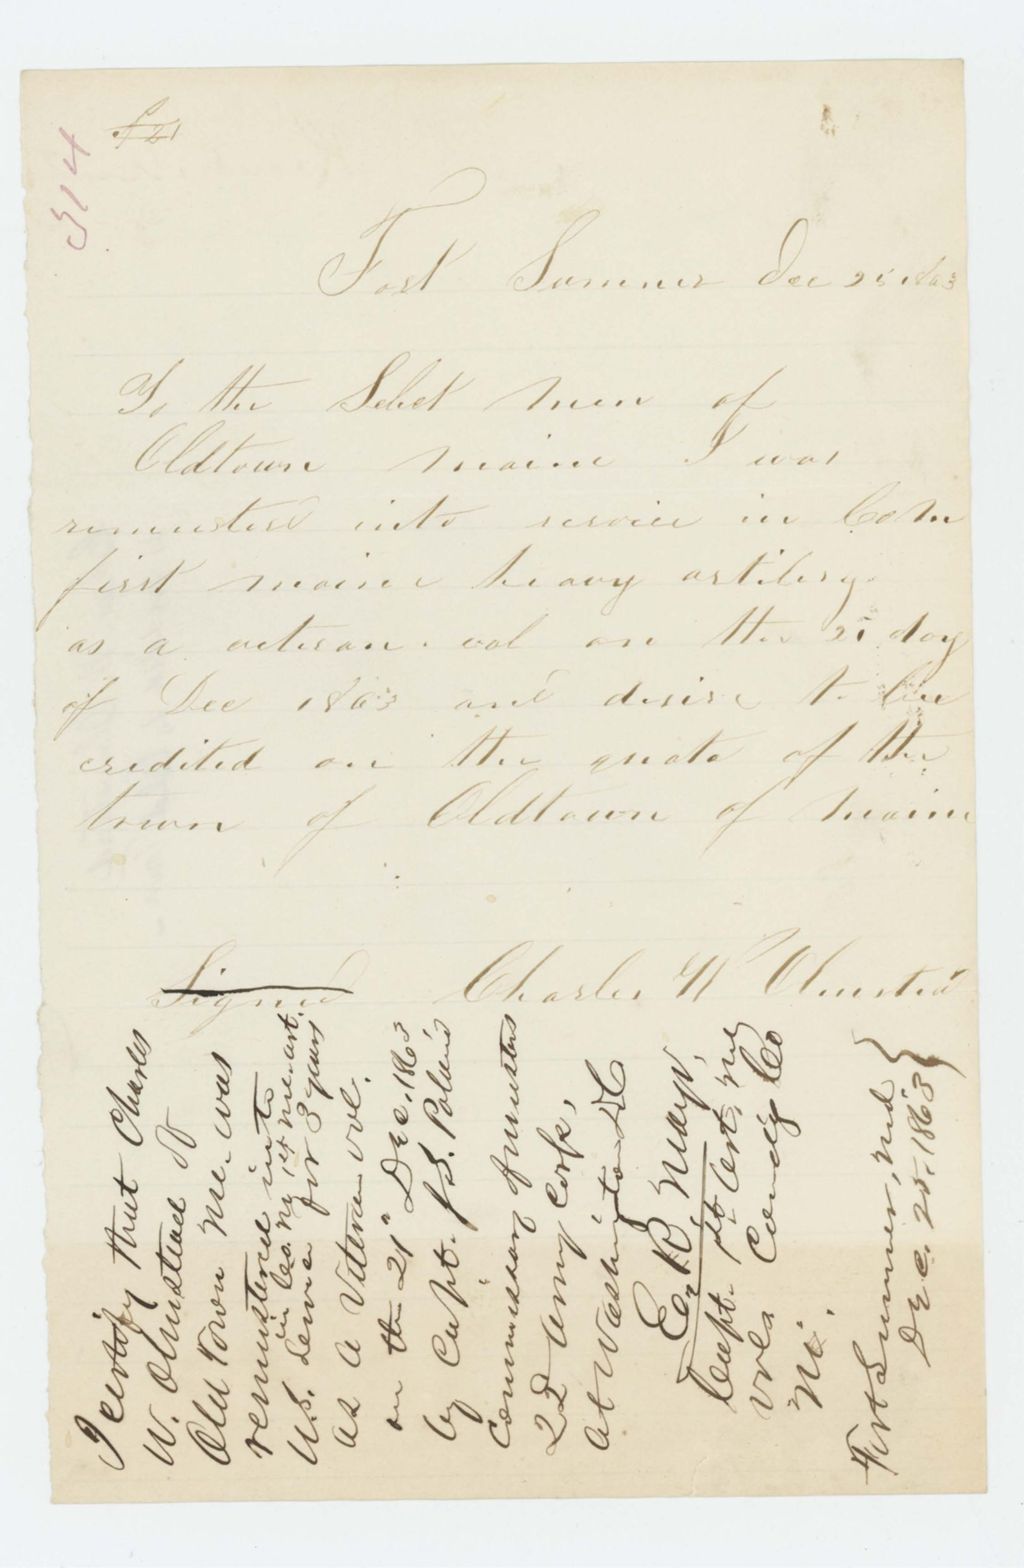 314
Fort Sumner Dec 25 1863
To the Select men of
Oldtown maine I was
remustered into service in Co M
first maine heavy artilery
as a veteran vol on the 21 day
of Dec 1863 and desire to be
credited on the quota of the
town of Oldtown of maine
Signed Charles W Olmsted
I certify that Charles
W. Olmstead of
Old Town Me. was
remustered into
in Co. M, 1st Me. art.
U.S. Service for 3 years
as a Veteran vol.
on the 21" Dec. 1863
by Capt. J.S. Poland
Commissary of musters
22d Army Corps,
at Washington DC
E. R. Mayo,
Capt. 1st Art, Me
Vols Comdg Co
M.
Fort Sumner, Md
Dec. 25. 1863